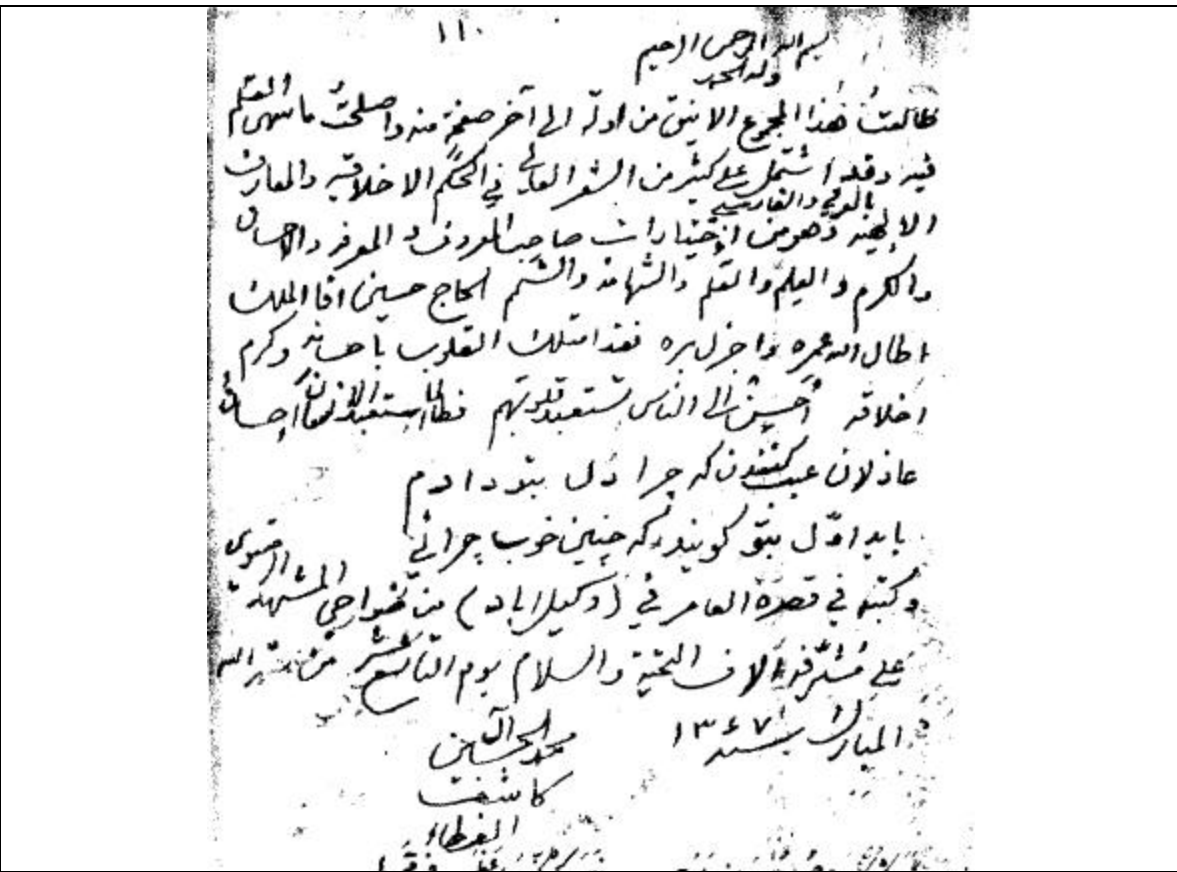 ١١٠
بسم الله الرحمن الرحيم
وله الحمد
طالعت هذا المجموع الانيق من اوله الى آخر صفحة منه واصلحت ما سهى القلم
فيه وقد اشتمل على كثير من الشعر العالي في الحكم الاخلاقية والمعارف
بالعربي والفارسي
الالهية وهو من اختيارات صاحب المعروف و الموفر والاحسان
والكرم و العلم والقلم والشهامة والشمم الحاج حسين اقا الملك
اطال الله عمره واجزل بره فقد امتلك القلوب باحسانه وكرم
اخلاقه احسن الى الناس تستعبد قلوبهم فطالما استعبد الانسان احسان
عاذلان عيب كنندن كه چرا دل بتو دادم
بايد اول بتو گويند كه چنين خوب چرائي
وكتبه في قصره العامر في (وكيل اباد) من نواحي المشهد الرضوي
على مشرفه الاف التحية والسلام يوم التاسع عشر من
المبارك سنه ١٣٦٧
محمد الحسين آل
كاشف
الغطاء